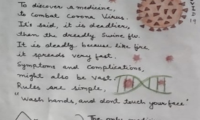 To discover is medicine,
to combat Corona Virus.
It's said, it is deadlier,
than the dreadly Swine flu.
It is deadly because, like fire
it spreads very fast.
Symptoms and Complications,
might also be vast.
Rules are simple,
"Wash hands, and don't touch your face"
The only